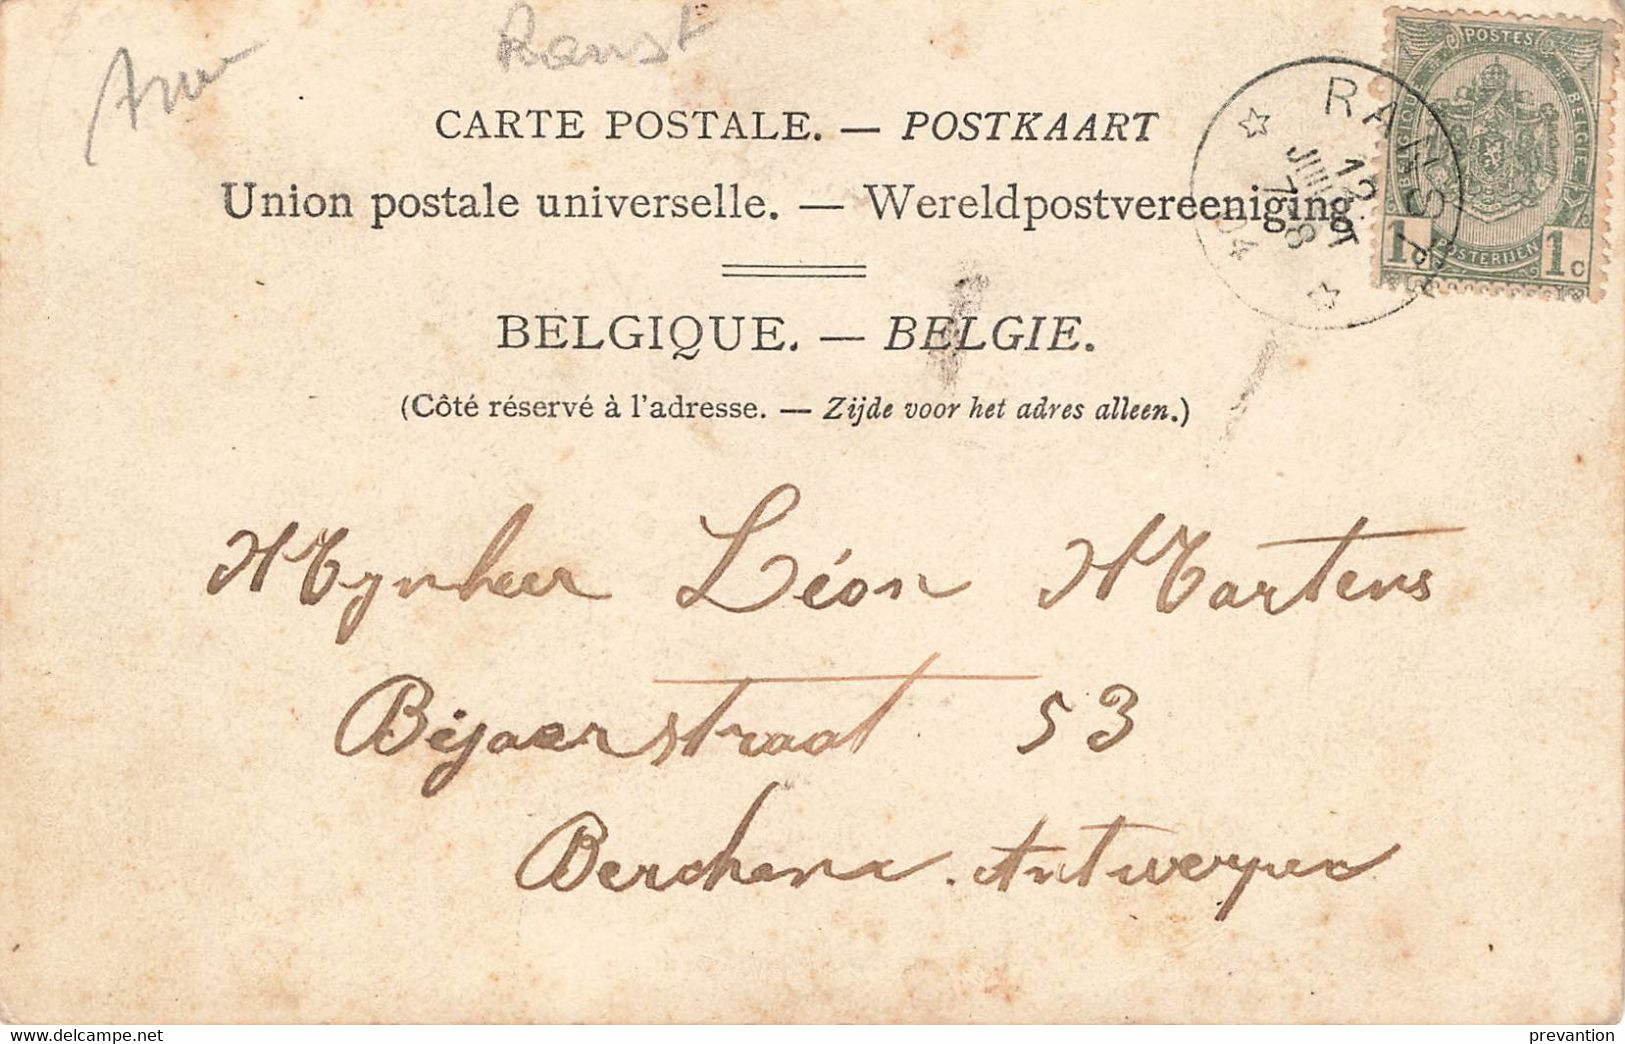 Ranst
CARTE POSTALE. — POSTKAART
Union postale universelle. — Wereldpostvereeniging
BELGIQUE. — BELGIE.
(Côté réservé à l'adresse. — Zijde voor het adres alleen.)
POSTES
BELGIQUE BELGIE
POSTERIJEN
1c 1c
RANST
12
JUIL
7-8
04
Mynheer Léon Martens
Bejaerstraat 53
Berchem. Antwerpen
https://www.delcampe.net
prevantion